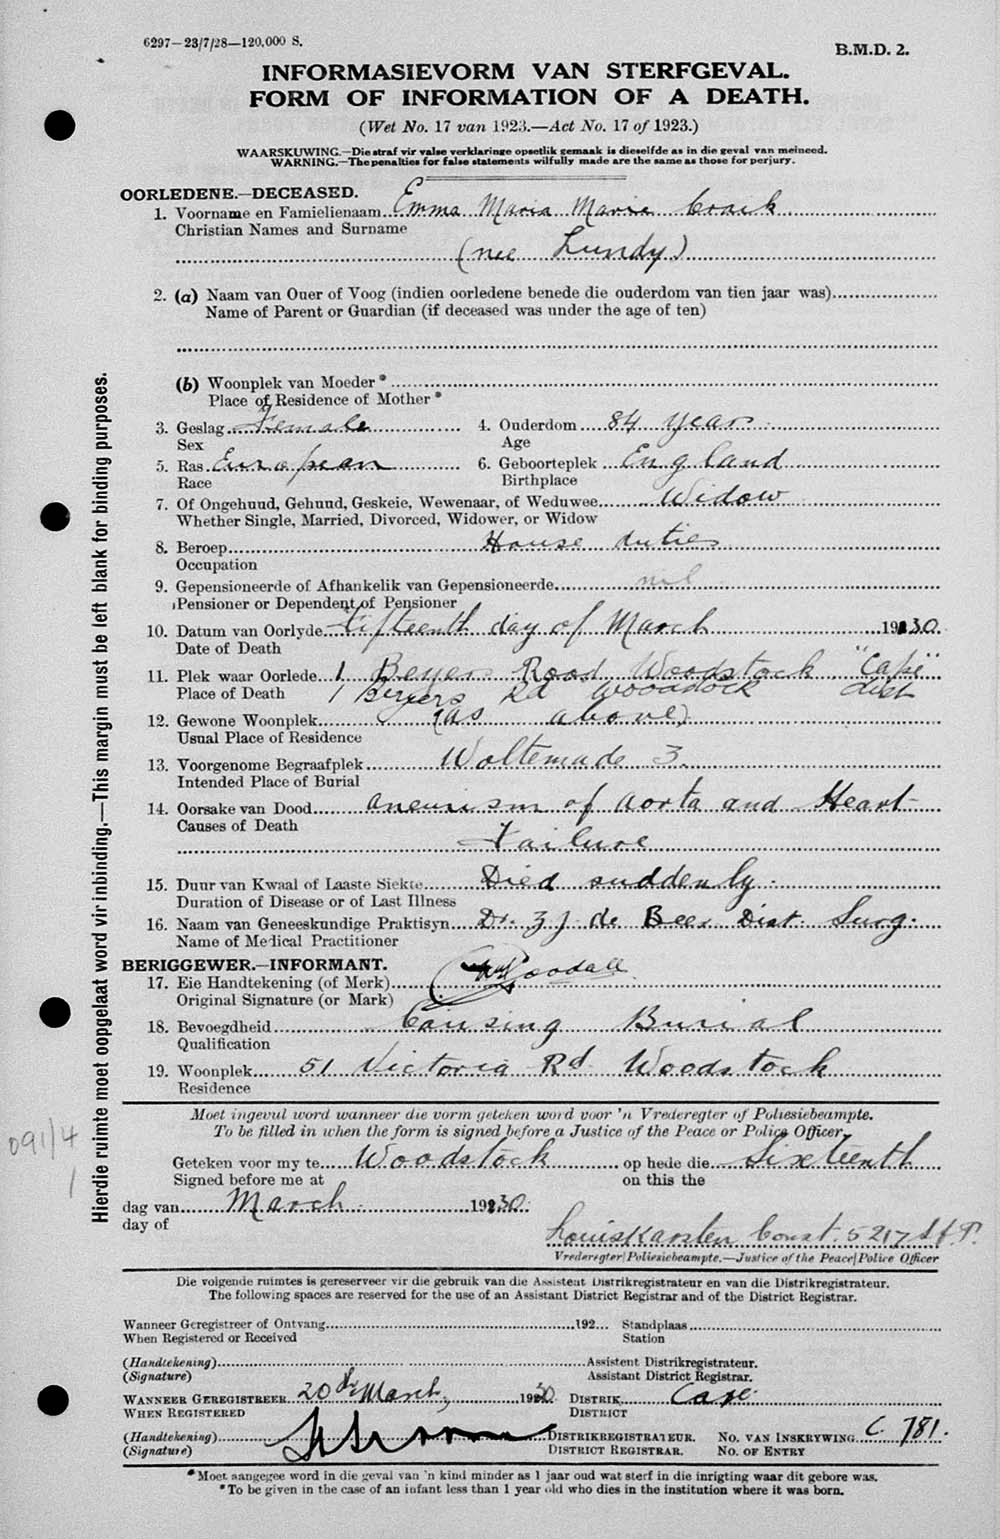 6297—23/7/28—120,000 S.
B.M.D. 2.
INFORMASIEVORM VAN STERFGEVAL.
FORM OF INFORMATION OF A DEATH.
(Wet No. 17 van 1923.—Act No. 17 of 1923.)
WAARSKUWING.—Die straf vir valse verklaringe opsetlik gemaak is dieselfde as in die geval van meineed.
WARNING.—The penalties for false statements wilfully made are the same as those for perjury.
OORLEDENE.—DECEASED.
1. Voorname en Famielienaam Emma Maria Marie
Christian Names and Surname
(nee Lundy)
2. (a) Naam van Ouer of Voog (indien oorledene benede die ouderdom van tien jaar was)
Name of Parent or Guardian (if deceased was under the age of ten)
(b) Woonplek van Moeder *
Place of Residence of Mother *
3. Geslag Female 4. Ouderdom 84 years
Sex Age
5. Ras European 6. Geboorteplek England
Race Birthplace
7. Of Ongehuud, Gehuud, Geskeie, Wewenaar, of Weduwee Widow
Whether Single, Married, Divorced, Widower, or Widow
8. Beroep House duties
Occupation
9. Gepensioneerde of Afhankelik van Gepensioneerde nil
Pensioner or Dependent of Pensioner
10. Datum van Oorlyde fifteenth day of March 1930
Date of Death
11. Plek waar Oorlede 1 Beyers Road Woodstock "Cape"
Place of Death 1 Beyers Rd Woodstock dist
12. Gewone Woonplek (as above)
Usual Place of Residence
13. Voorgenome Begraafplek Woltemade 3
Intended Place of Burial
14. Oorsake van Dood aneurism of aorta and Heart
Causes of Death
Failure
15. Duur van Kwaal of Laaste Siekte Died suddenly
Duration of Disease or of Last Illness
16. Naam van Geneeskundige Praktisyn Dr. Z J. de Beer Dist. Surg.
Name of Medical Practitioner
BERIGGEWER.—INFORMANT.
17. Eie Handtekening (of Merk) Goodall
Original Signature (or Mark)
18. Bevoegdheid Causing Burial
Qualification
19. Woonplek 51 Victoria Rd. Woodstock
Residence
Moet ingevul word wanneer die vorm geteken word voor 'n Vrederegter of Poliesiebeampte.
To be filled in when the form is signed before a Justice of the Peace or Police Officer.
Geteken voor my te Woodstock op hede die Sixteenth
Signed before me at on this the
dag van March 1930
day of
Louis Karsten Const. 5217
Vrederegter|Poliesiebeampte.—Justice of the Peace|Police Officer
Die volgende ruimtes is gereserveer vir die gebruik van die Assistent Distrikregistrateur en van die Distrikregistrateur.
The following spaces are reserved for the use of an Assistant District Registrar and of the District Registrar.
Wanneer Geregistreer of Ontvang 192 Standplaas
When Registered or Received Station
(Handtekening) Assistent Distrikregistrateur.
(Signature) Assistant District Registrar.
WANNEER GEREGISTREER 20th March, 1930 DISTRIK Cape
WHEN REGISTERED DISTRICT
(Handtekening) DISTRIKREGISTRATEUR. NO. VAN INSKRYWING C. 781.
(Signature) DISTRICT REGISTRAR. NO. OF ENTRY
*Moet aangegee word in die geval van 'n kind minder as 1 jaar oud wat sterf in die inrigting waar dit gebore was.
*To be given in the case of an infant less than 1 year old who dies in the institution where it was born.
Hierdie ruimte moet oopgelaat word vir inbinding.—This margin must be left blank for binding purposes.
091/4
1